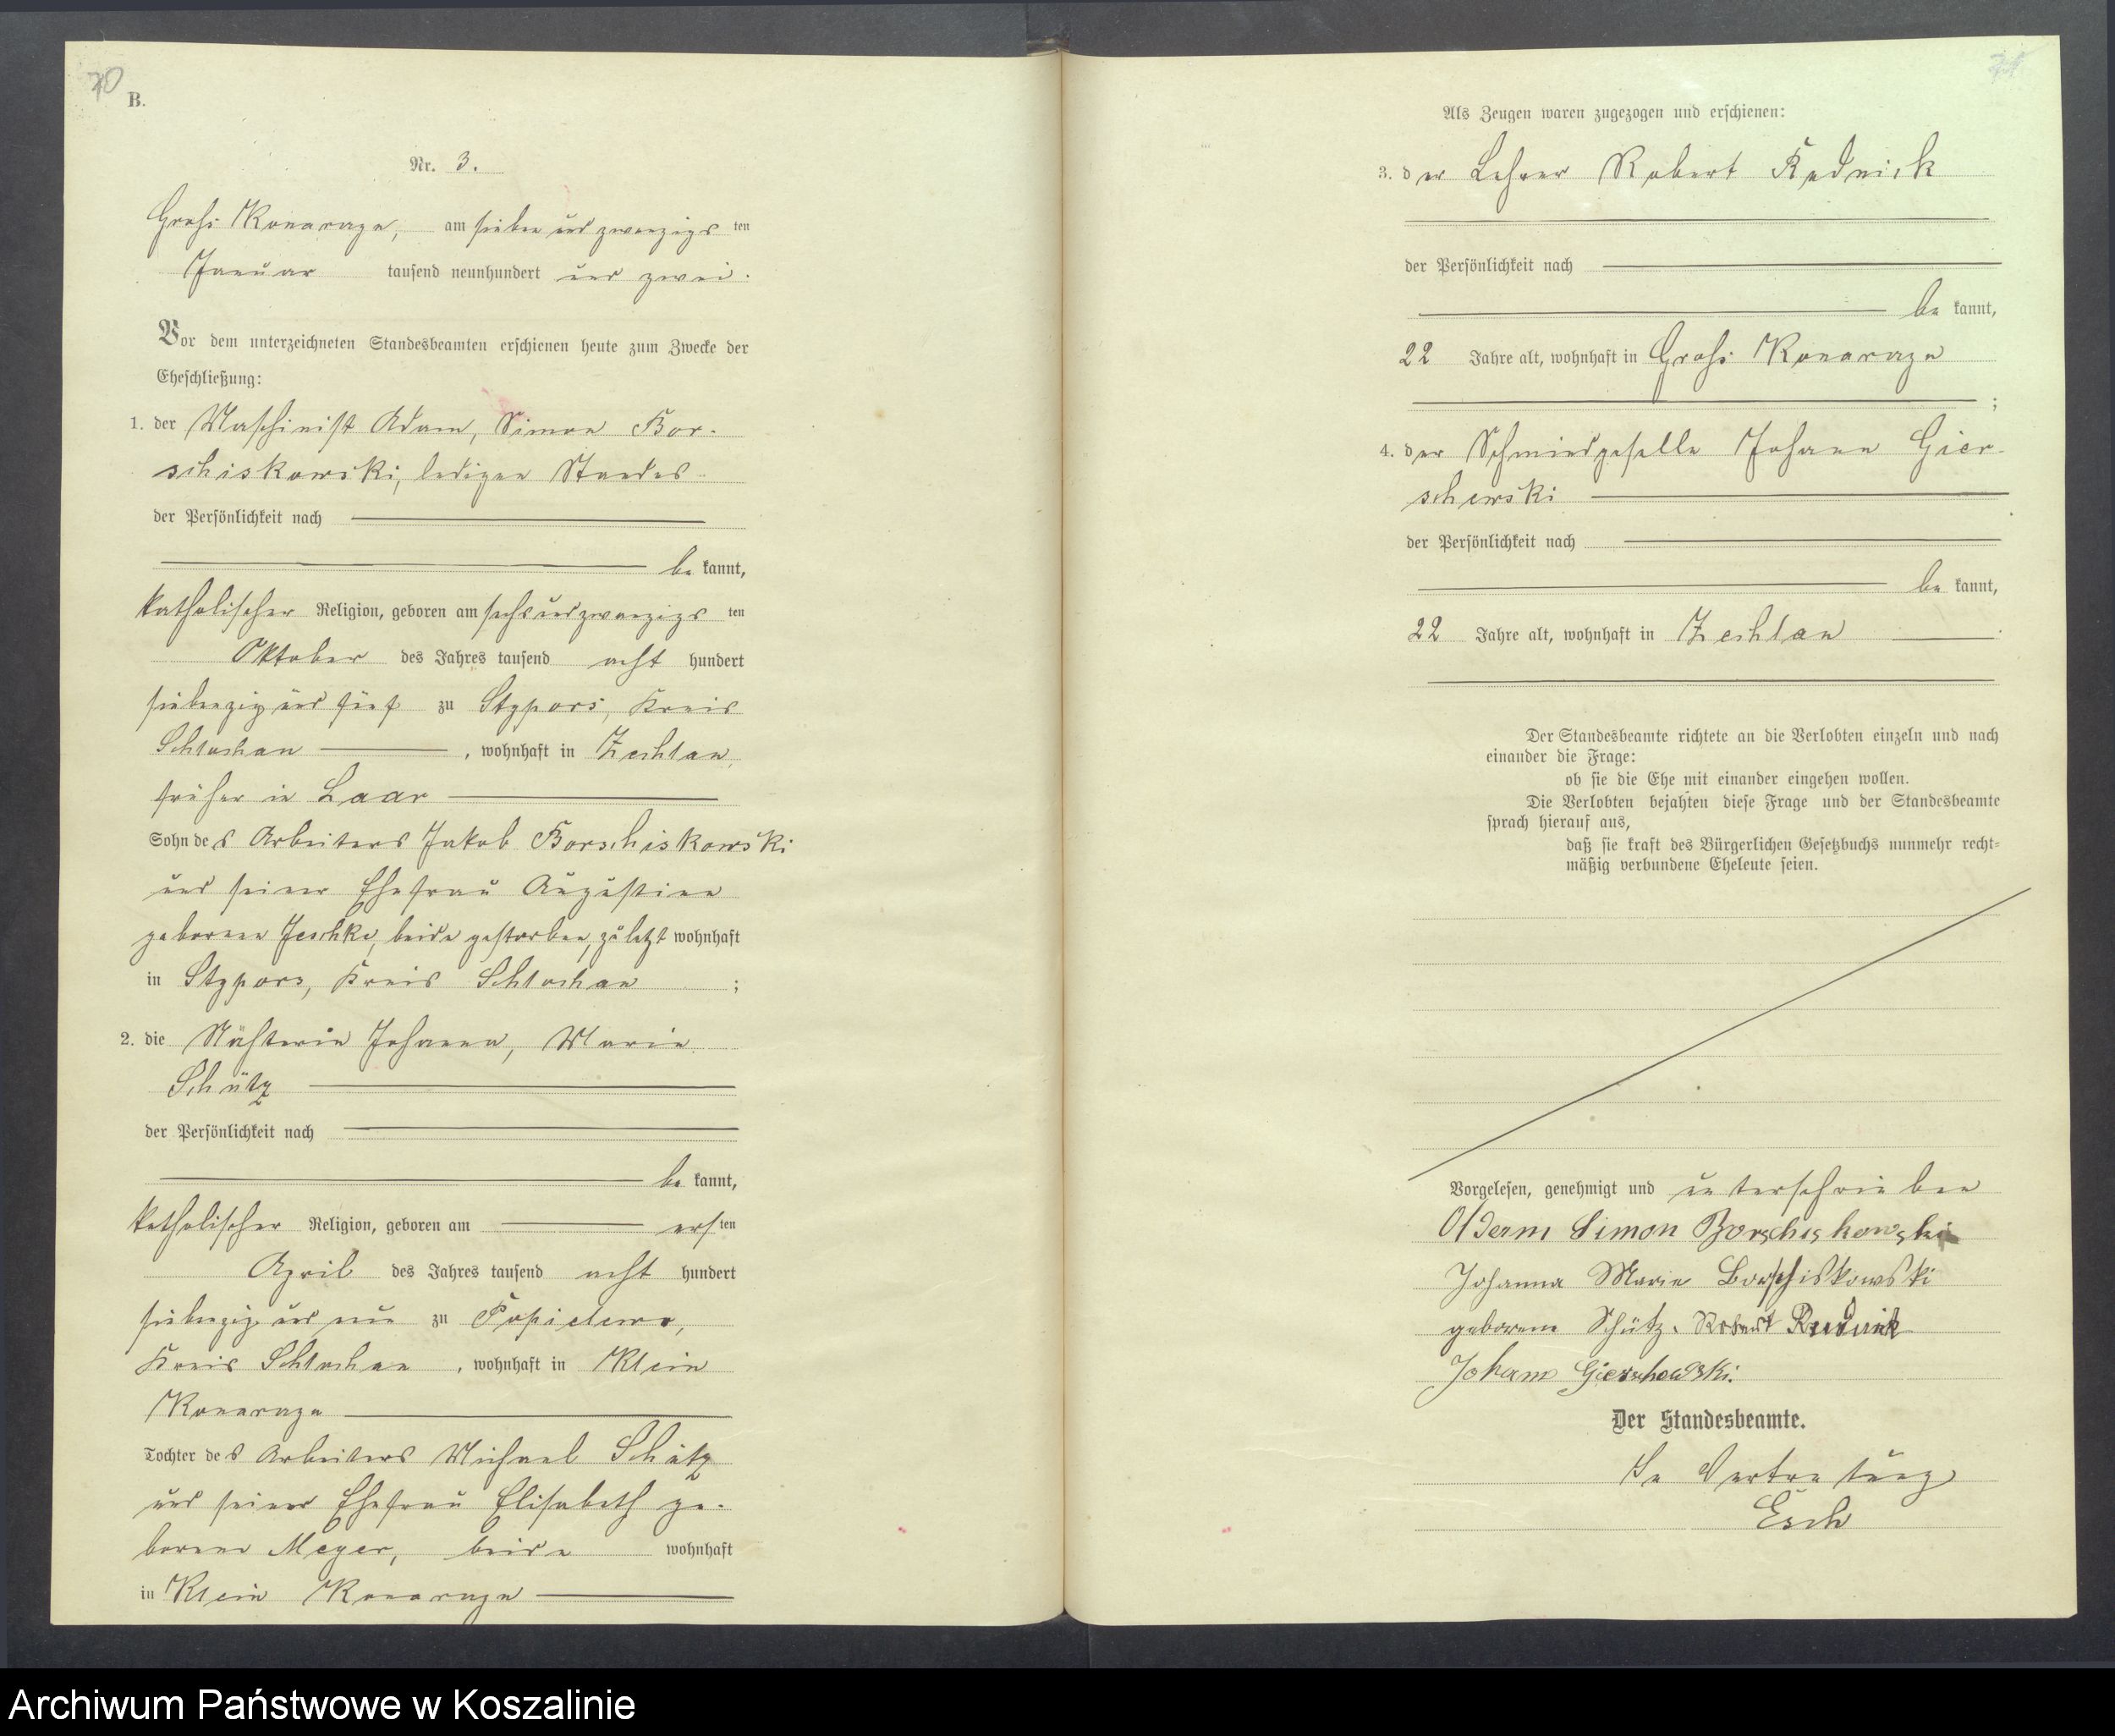 70
B.
Nr. 3.
Groß Konarzyn, am sieben und zwanzigsten
Januar tausend neunhundert und zwei.
Vor dem unterzeichneten Standesbeamten erschienen heute zum Zwecke der
Eheschließung:
1. der Maschinist Adam, Simon Bor-
schiskowski, ledigen Standes
der Persönlichkeit nach
be kannt,
katholischer Religion, geboren am sechsundzwanzigsten
Oktober des Jahres tausend acht hundert
siebenzig und fünf zu Stypors, Kreis
Schlochau, wohnhaft in Zechlau,
früher in Laar
Sohn des Arbeiters Jakob Borschiskowski
und seiner Ehefrau Augustine
geborenen Jeschke, beide gestorben, zuletzt wohnhaft
in Stypors, Kreis Schlochau ;
2. die Nähterin Johanna, Marie
Schütz
der Persönlichkeit nach
be kannt,
katholischer Religion, geboren am ersten
April des Jahres tausend acht hundert
siebenzig und neun zu
Kreis Schlochau, wohnhaft in Klein
Konarzyn
Tochter des Arbeiters Michael Schütz
und seiner Ehefrau Elisabeth ge-
borene Meyer, beide wohnhaft
in Klein Konarzyn
71
Als Zeugen waren zugezogen und erschienen:
3. der Lehrer Robert Rudnick
der Persönlichkeit nach
be kannt,
22 Jahre alt, wohnhaft in Groß Konarzyn
;
4. der Schmiedgeselle Johann Gier-
schewski
der Persönlichkeit nach
be kannt,
22 Jahre alt, wohnhaft in Zechlau
Der Standesbeamte richtete an die Verlobten einzeln und nach
einander die Frage:
ob sie die Ehe mit einander eingehen wollen.
Die Verlobten bejahten diese Frage und der Standesbeamte
sprach hierauf aus,
daß sie kraft des Bürgerlichen Gesetzbuchs nunmehr recht=
mäßig verbundene Eheleute seien.
Vorgelesen, genehmigt und unterschrieben
Adam Simon Borschiskowski
Johanna Marie Borschiskowski
geborene Schütz. Robert Rudnick
Johann Gierschewski.
Der Standesbeamte.
In Vertretung
Esch
Archiwum Państwowe w Koszalinie